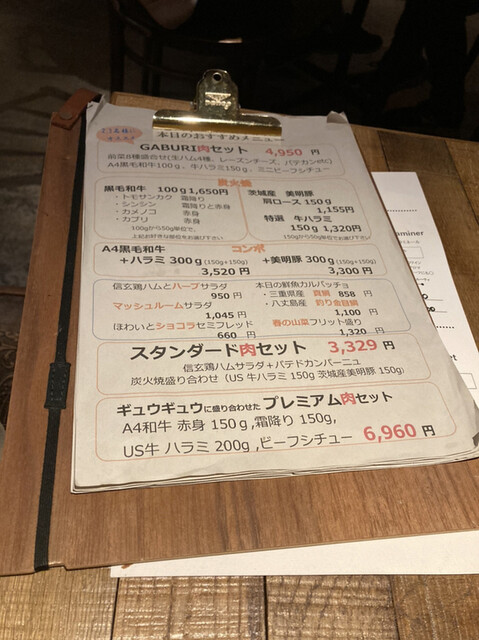 2,3名様に
オススメ
本日のおすすめメニュー
GABURI肉セット 4,950 円
前菜8種盛合せ(生ハム4種、レーズンチーズ、パテカンetc)
A4黒毛和牛100g、牛ハラミ150g、ミニビーフシチュー
炭火焼
黒毛和牛 100g1,650円
・トモサンカク 霜降り
・シンシン 霜降りと赤身
・カメノコ 赤身
・カブリ 赤身
100gから50g単位で、
上記お好きな部位をお選び下さい
茨城産 美明豚
肩ロース 150g
1,155円
特選 牛ハラミ
150g 1,320円
150gから50g単位でお選び下さい
コンボ
A4黒毛和牛
+ハラミ 300g(150g+150g)
3,520 円
+美明豚 300g(150g+150g)
3,300 円
信玄鶏ハムとハーブサラダ
950 円
マッシュルームサラダ
1,045 円
ほわいとショコラセミフレッド
660 円
本日の鮮魚カルパッチョ
・三重県産 真鯛 858 円
・八丈島産 釣り金目鯛
1,100 円
春の山菜フリット盛り
1,320 円
スタンダード肉セット 3,329 円
信玄鶏ハムサラダ+パテドカンパーニュ
炭火焼盛り合わせ (US 牛ハラミ 150g 茨城産美明豚 150g)
ギュウギュウに盛り合わせた プレミアム肉セット
A4和牛 赤身 150g,霜降り 150g,
US牛 ハラミ 200g,ビーフシチュー 6,960 円